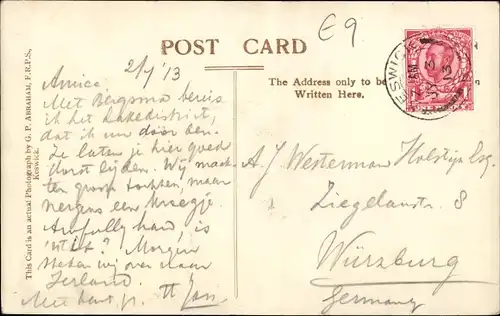 E9
POST CARD
The Address only to be
Written Here.
This Card is an actual Photograph by G. P. ABRAHAM, F.R.P.S.,
Keswick.
2/7/13
Amice
Met Bergsma
ik het Lakedistrict,
dat ik nu door ben.
Ze laten je hier goed
dorst lijden. Wij maak-
ten groote tochten, maar
nergens een kroegje.
Awfully hard, is
't niet? Morgen
steken wij over naar
Ierland.
Met
Jan
KESWICK
AM
13
A J Westerman Holstijn
Ziegelaustr. 8
Würzburg
Germany